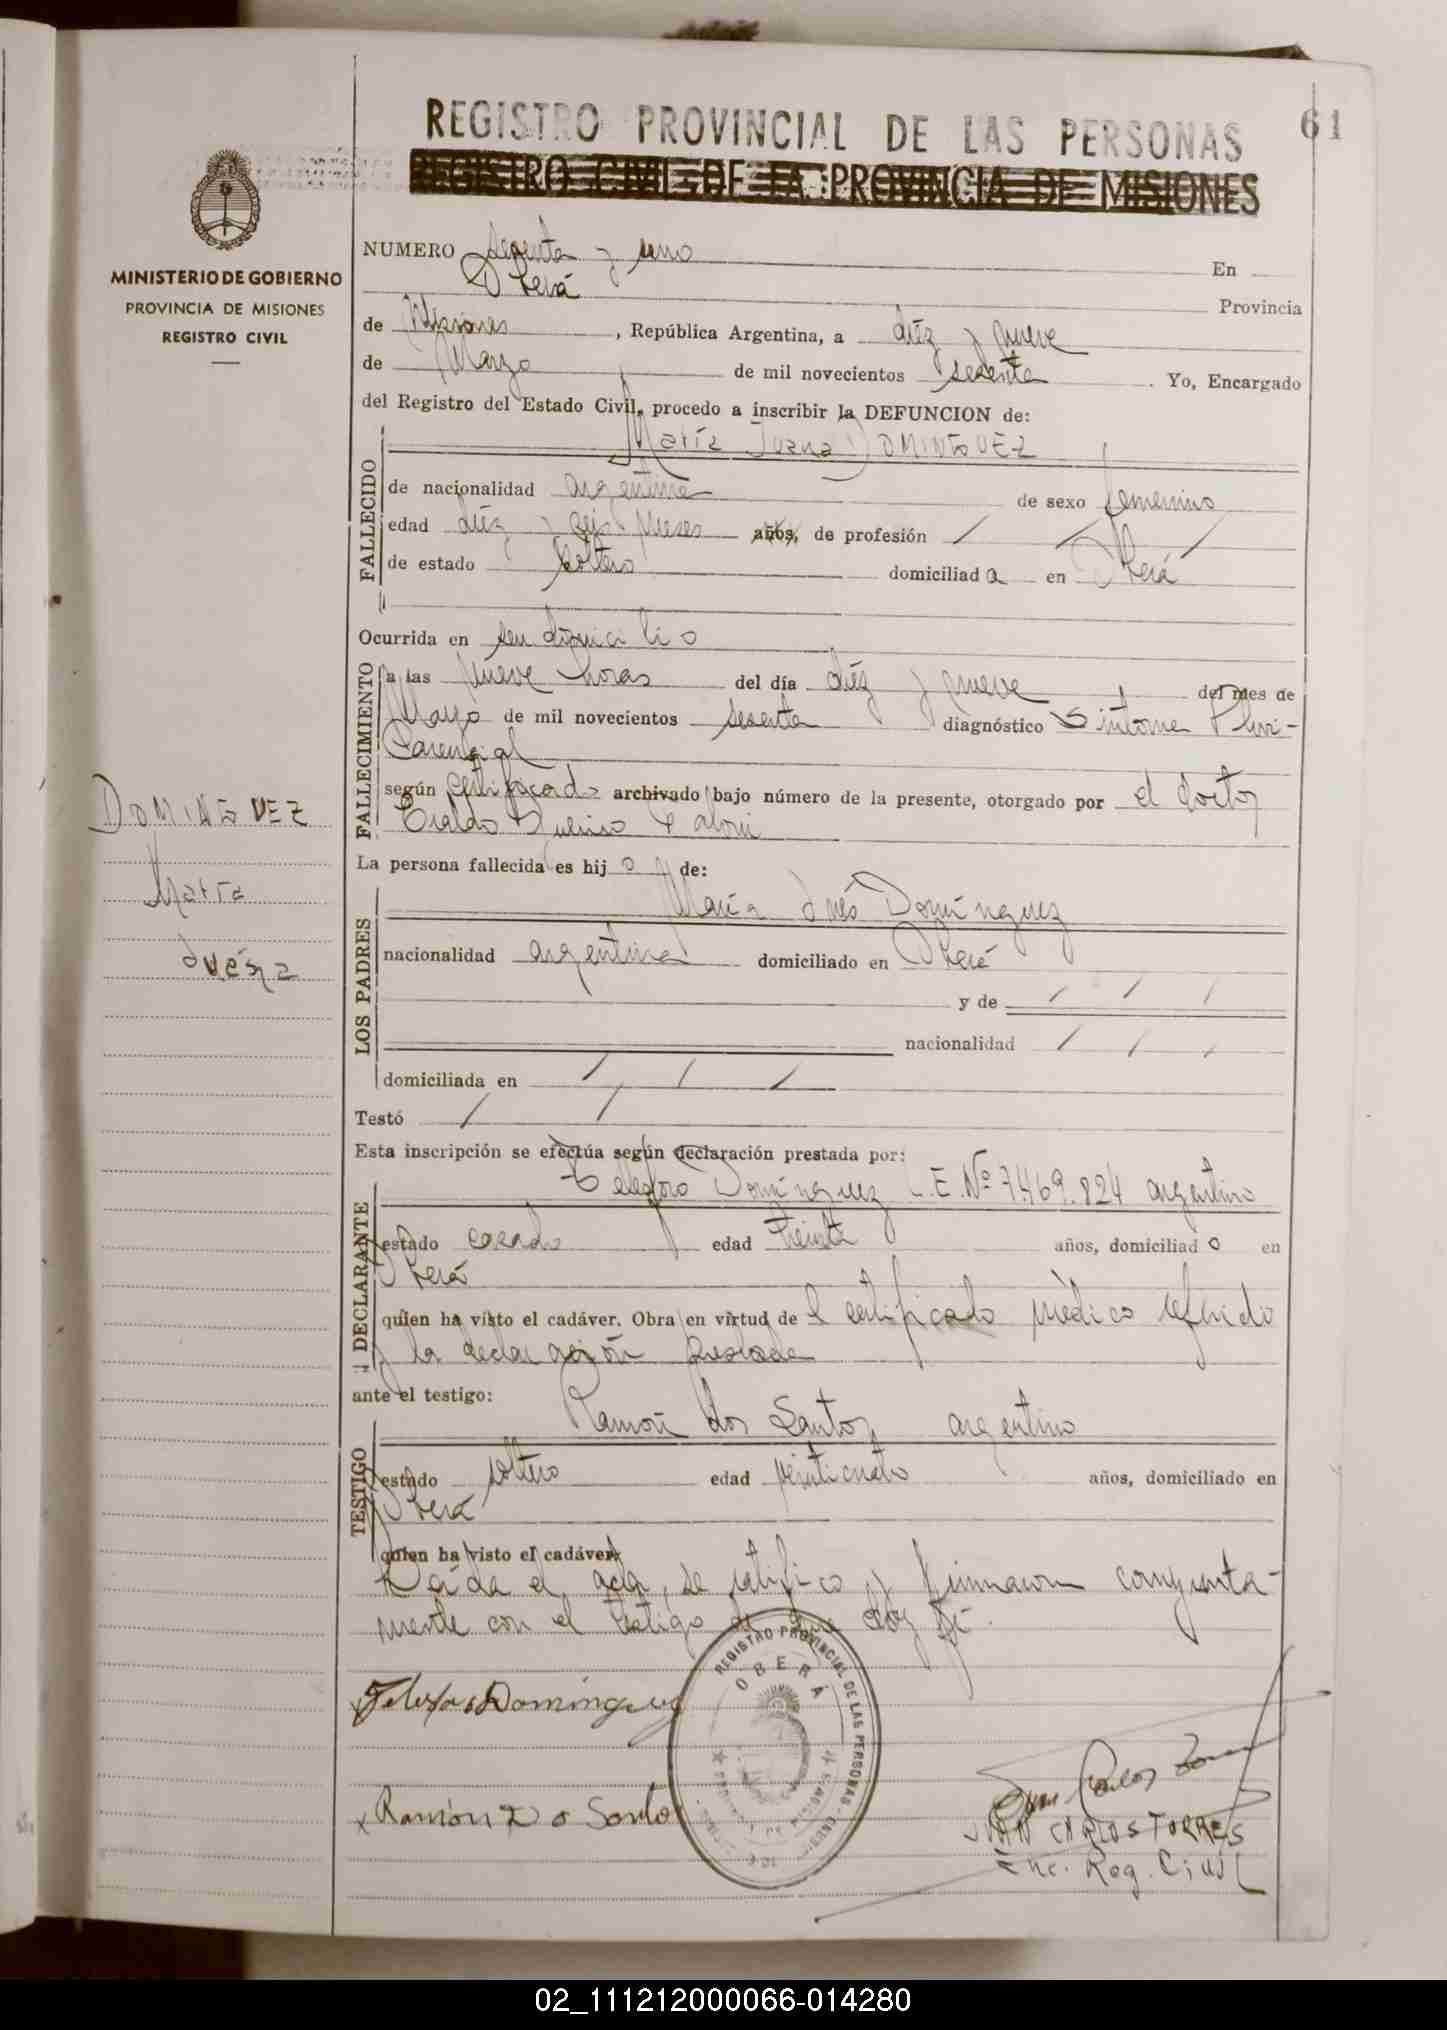 61
REGISTRO PROVINCIAL DE LAS PERSONAS
REGISTRO CIVIL DE LA PROVINCIA DE MISIONES
MINISTERIO DE GOBIERNO
PROVINCIA DE MISIONES
REGISTRO CIVIL
NUMERO sesenta y uno En
Oberá Provincia
de Misiones, República Argentina, a diéz y nueve
de Marzo de mil novecientos sesenta. Yo, Encargado
del Registro del Estado Civil, procedo a inscribir la DEFUNCION de:
María Juana DOMINGUEZ
FALLECIDO
de nacionalidad argentina de sexo femenino
edad diéz y seis meses años, de profesión / / /
de estado soltero domiciliad a en Oberá
Ocurrida en su domicilio
FALLECIMIENTO
a las nueve horas del día diéz y nueve del mes de
Marzo de mil novecientos sesenta diagnóstico Sintome Pluri-
Carencial
según certificado archivado bajo número de la presente, otorgado por el doctor
DOMINGUEZ
María
Juana
La persona fallecida es hij o de:
LOS PADRES
María Inés Domínguez
nacionalidad argentina domiciliado en Oberá
y de / / /
nacionalidad / / /
domiciliada en / / /
Testó / /
Esta inscripción se efectúa según declaración prestada por:
DECLARANTE
Telesforo Domínguez L.E. Nº 7.469.824 argentino
estado casado edad treinta años, domiciliad o en
Oberá
quien ha visto el cadáver. Obra en virtud de l certificado médico referido
y la declaración prestada
ante el testigo:
TESTIGO
Ramón dos Santos argentino
estado soltero edad veinticuatro años, domiciliado en
Oberá
quien ha visto el cadáver
Leída el acta, se ratifico y firmaron conjunta-
mente con el testigo de que doy fé.
Domínguez
REGISTRO PROVINCIAL DE LAS PERSONAS
OBERÁ
Ramón Do Santo
Juan Carlos Torres
JUAN CARLOS TORRES
Enc. Reg. Civil
02_111212000066-014280